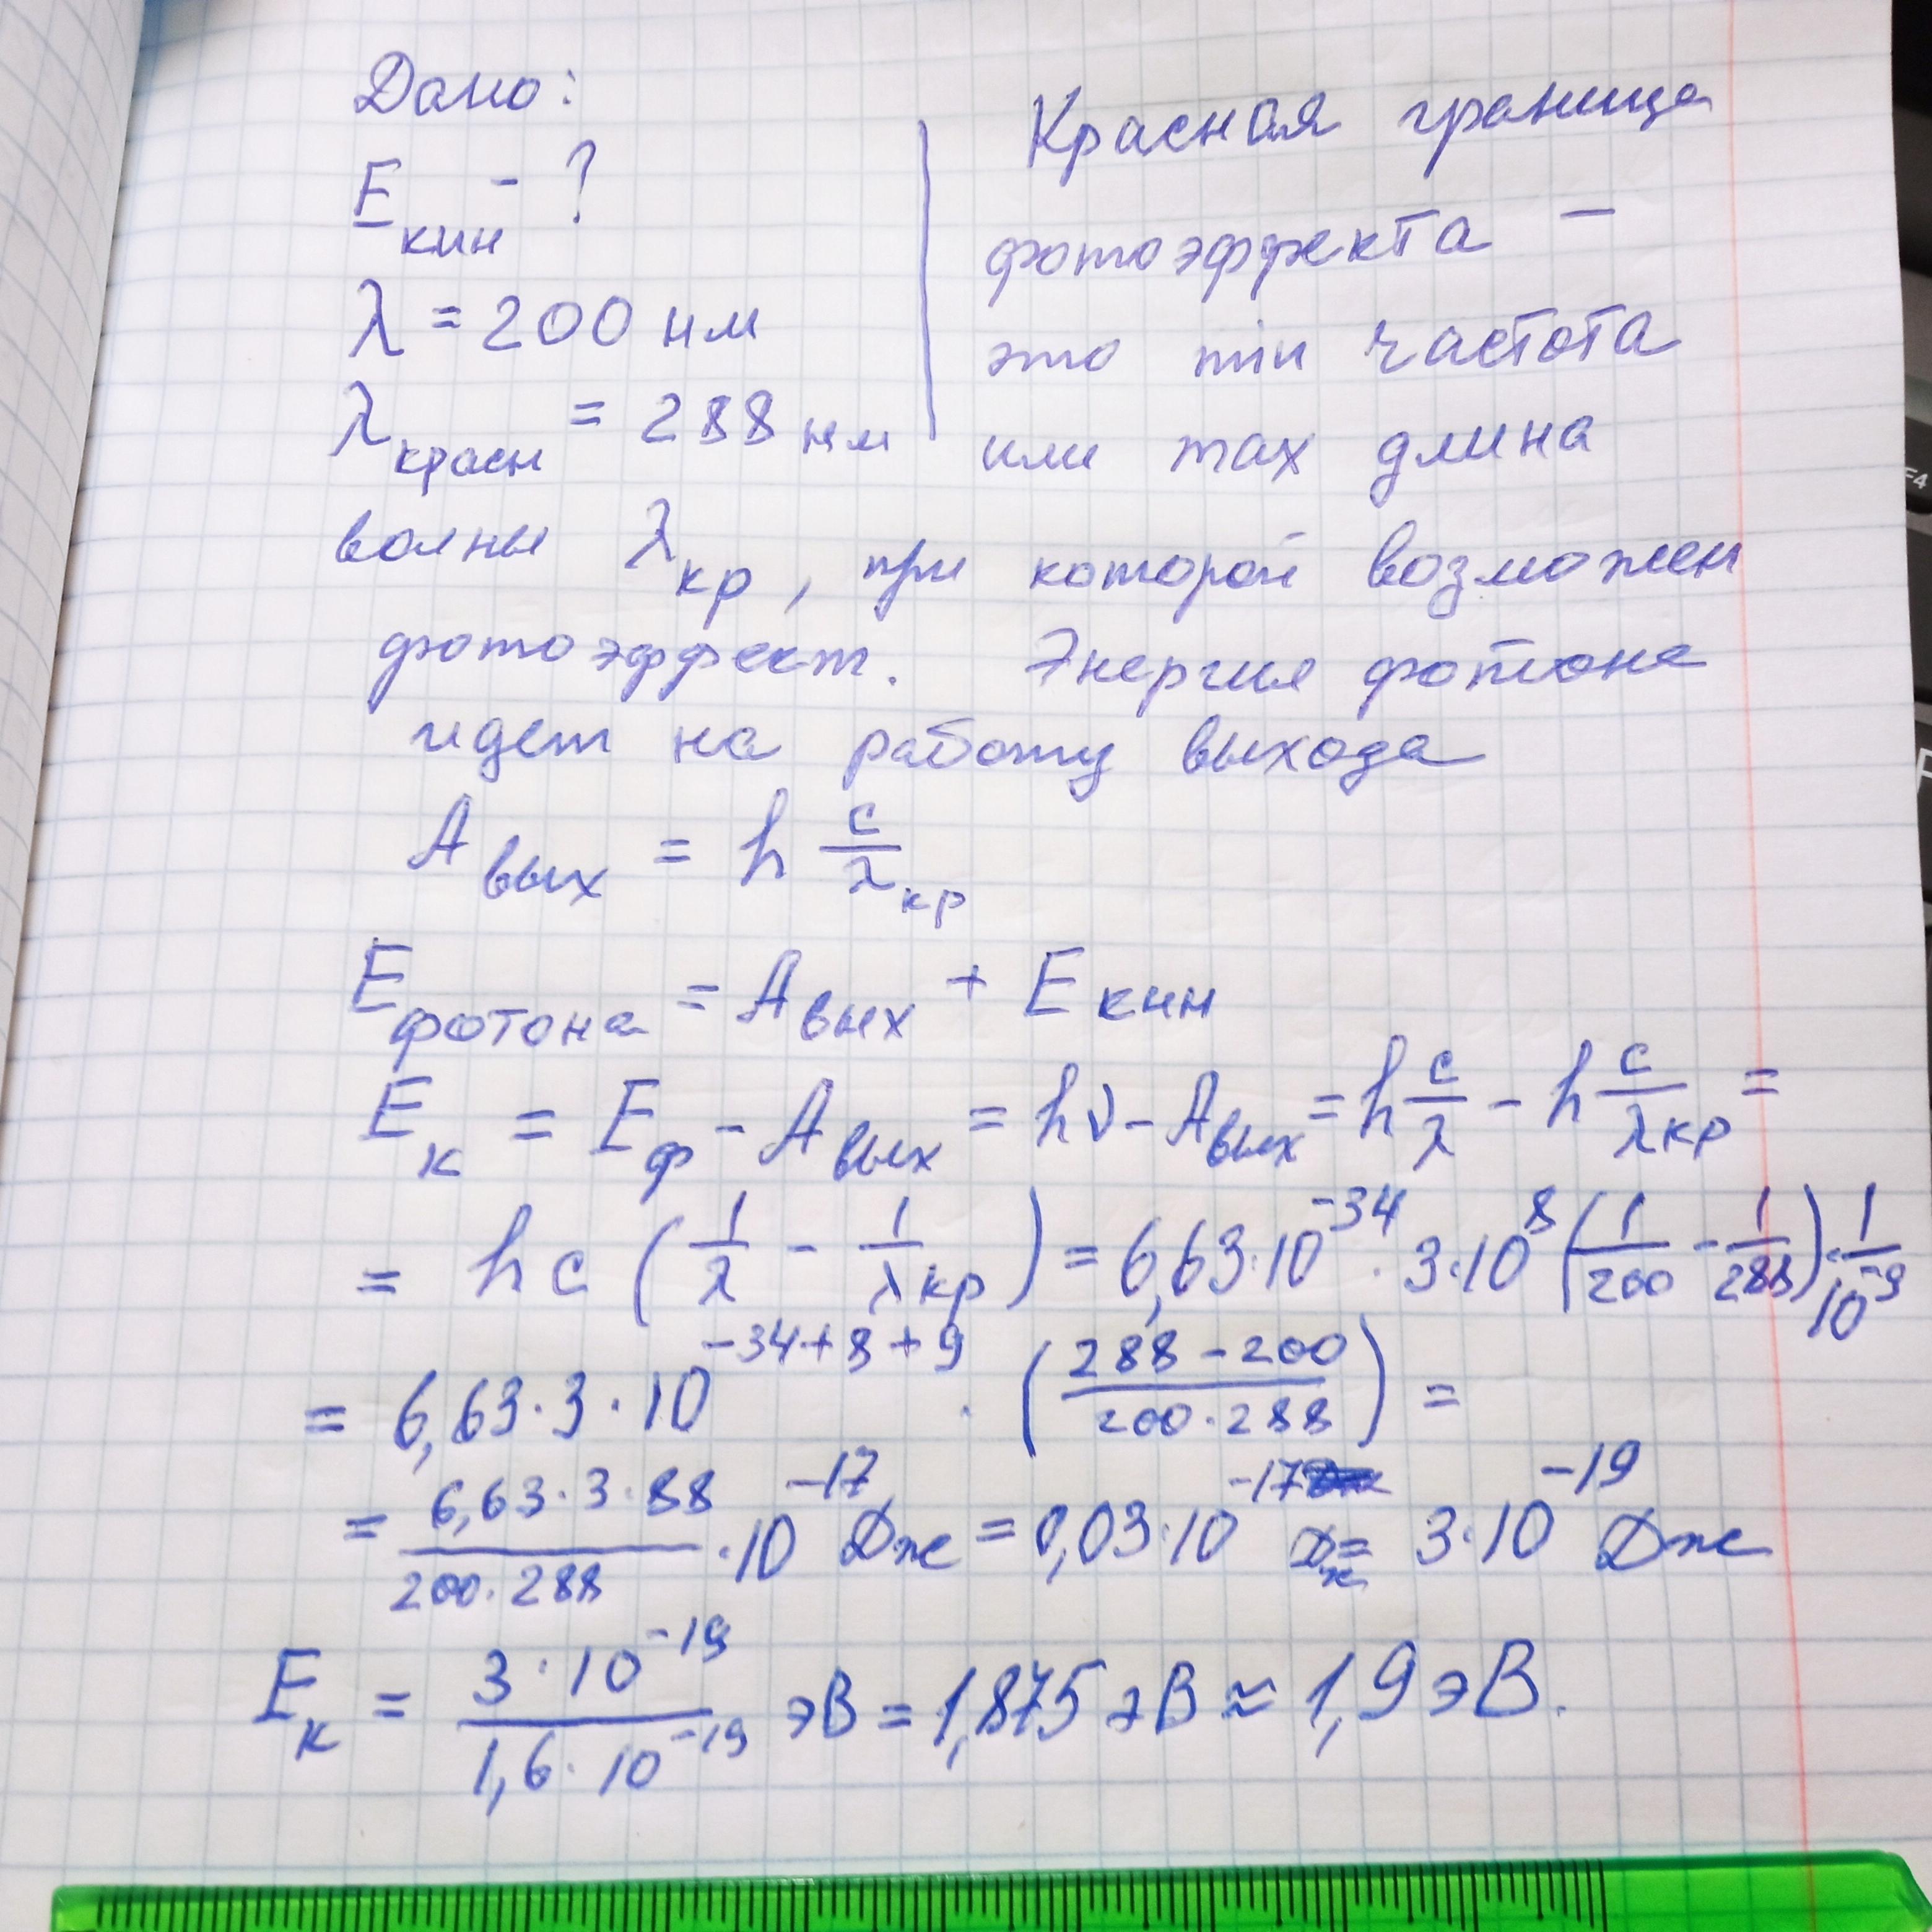 Дано:
E кин - ?
λ = 200 нм
λ красн = 288 нм
Красная граница
фотоэффекта –
это min частота
или max длина
волны λ кр, при которой возможен
фотоэффект. Энергия фотона
идет на работу выхода
A вых = h c/λ кр
E фотона = A вых + E кин
E к = E ф - A вых = hν - A вых = h c/λ - h c/λ кр =
= hc (1/λ - 1/λ кр) = 6,63·10^-34 · 3·10^8 (1/200 - 1/288) · 1/10^-9
= 6,63·3·10^-34+8+9 · (288-200/200·288) =
= 6,63·3·88/200·288 · 10^-17 Дж = 0,03·10^-17 Дж = 3·10^-19 Дж
E к = 3·10^-19/1,6·10^-19 эВ = 1,875 эВ ≈ 1,9 эВ.
F4